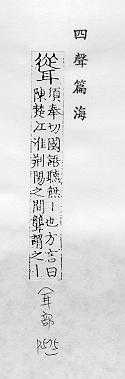 四聲篇海
𦗜
須奉切國語聽無丨也方言曰
陳楚江淮荆陽之間聾謂之丨
(耳部